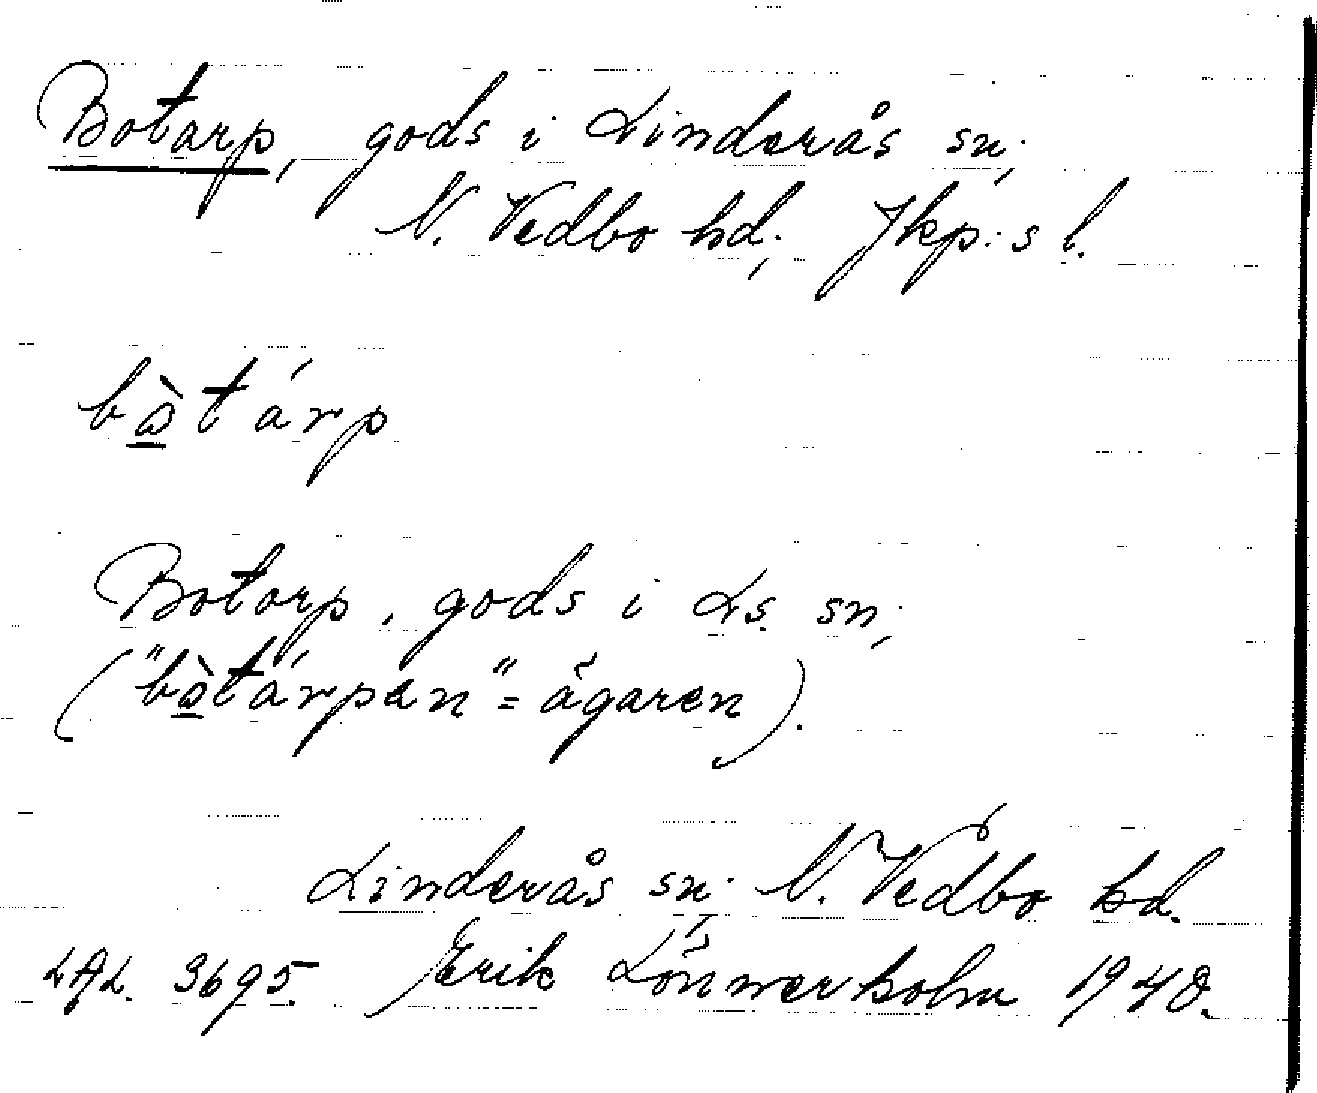 Botarp, gods i Linderås sn;
N. Vedbo hd; Jkp:s l.
bòtárp
Botorp, gods i Ls. sn;
("bòtárpen" = ägaren).
Linderås sn; N. Vedbo hd.
LAL. 3695. Erik Lönnerholm 1940.